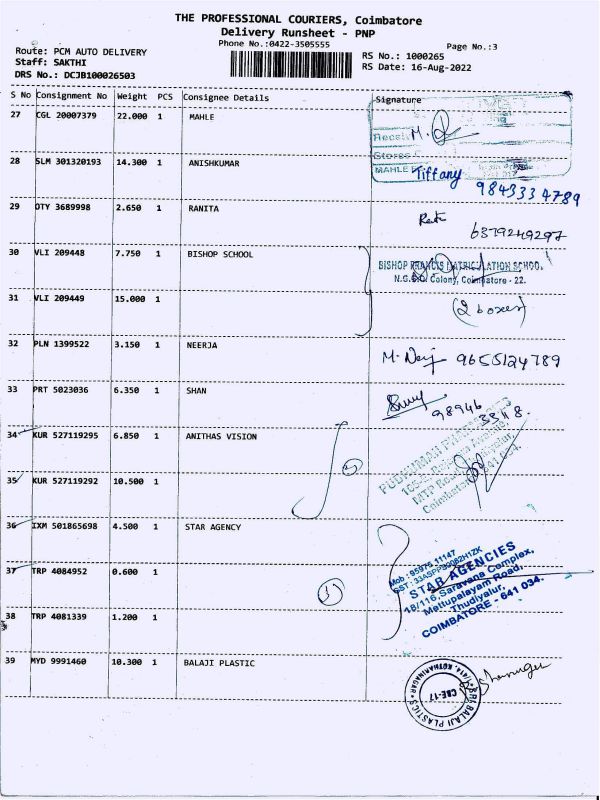 THE PROFESSIONAL COURIERS, Coimbatore
Delivery Runsheet - PNP
Phone No.:0422-3505555
Page No.:3
Route: PCM AUTO DELIVERY
Staff: SAKTHI
DRS No.: DCJB100026503
RS No.: 1000265
RS Date: 16-Aug-2022
S No Consignment No Weight PCS Consignee Details Signature
27 CGL 20007379 22.000 1 MAHLE
MAHLE
28 SLM 301320193 14.300 1 ANISHKUMAR Tiffany
9843334789
29 DTY 3689998 2.650 1 RANITA
6379249297
30 VLI 209448 7.750 1 BISHOP SCHOOL
BISHOP FRANCIS MATRICULATION SCHOOL
N.G.G.O. Colony, Coimbatore - 22.
31 VLI 209449 15.000 1 (2 boxes)
32 PLN 1399522 3.150 1 NEERJA 9655124789
33 PRT 5023036 6.350 1 SHAN
98946
34 KUR 527119295 6.850 1 ANITHAS VISION
35 KUR 527119292 10.500 1
MTP Road
Coimbatore 641 034.
36 IXM 501865698 4.500 1 STAR AGENCY
37 TRP 4084952 0.600 1
Mob : 95976 11147
STAR AGENCIES
18/116, Saravana Complex,
Mettupalayam Road,
Thudiyalur,
COIMBATORE - 641 034.
38 TRP 4081339 1.200 1
39 MYD 9991460 10.300 1 BALAJI PLASTIC
SRI BALAJI PLASTICS
CBE-17